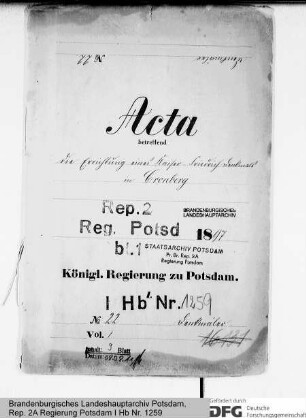 № 22
Denkmäler
Acta
betreffend
die Errichtung eines Kaiser Friedrich Denkmals
in Cronberg
Rep. 2
BRANDENBURGISCHES
LANDESHAUPTARCHIV
Reg. Potsd
1897
bl. 1
STAATSARCHIV POTSDAM
Pr. Br. Rep. 2A
Regierung Potsdam
Königl. Regierung zu Potsdam.
I Hb Nr. 1259
№ 22
Denkmäler
Vol. 1
Inhalt: 9 Blatt
Datum
Brandenburgisches Landeshauptarchiv Potsdam,
Rep. 2A Regierung Potsdam I Hb Nr. 1259
Gefördert durch
DFG Deutsche
Forschungsgemeinschaft